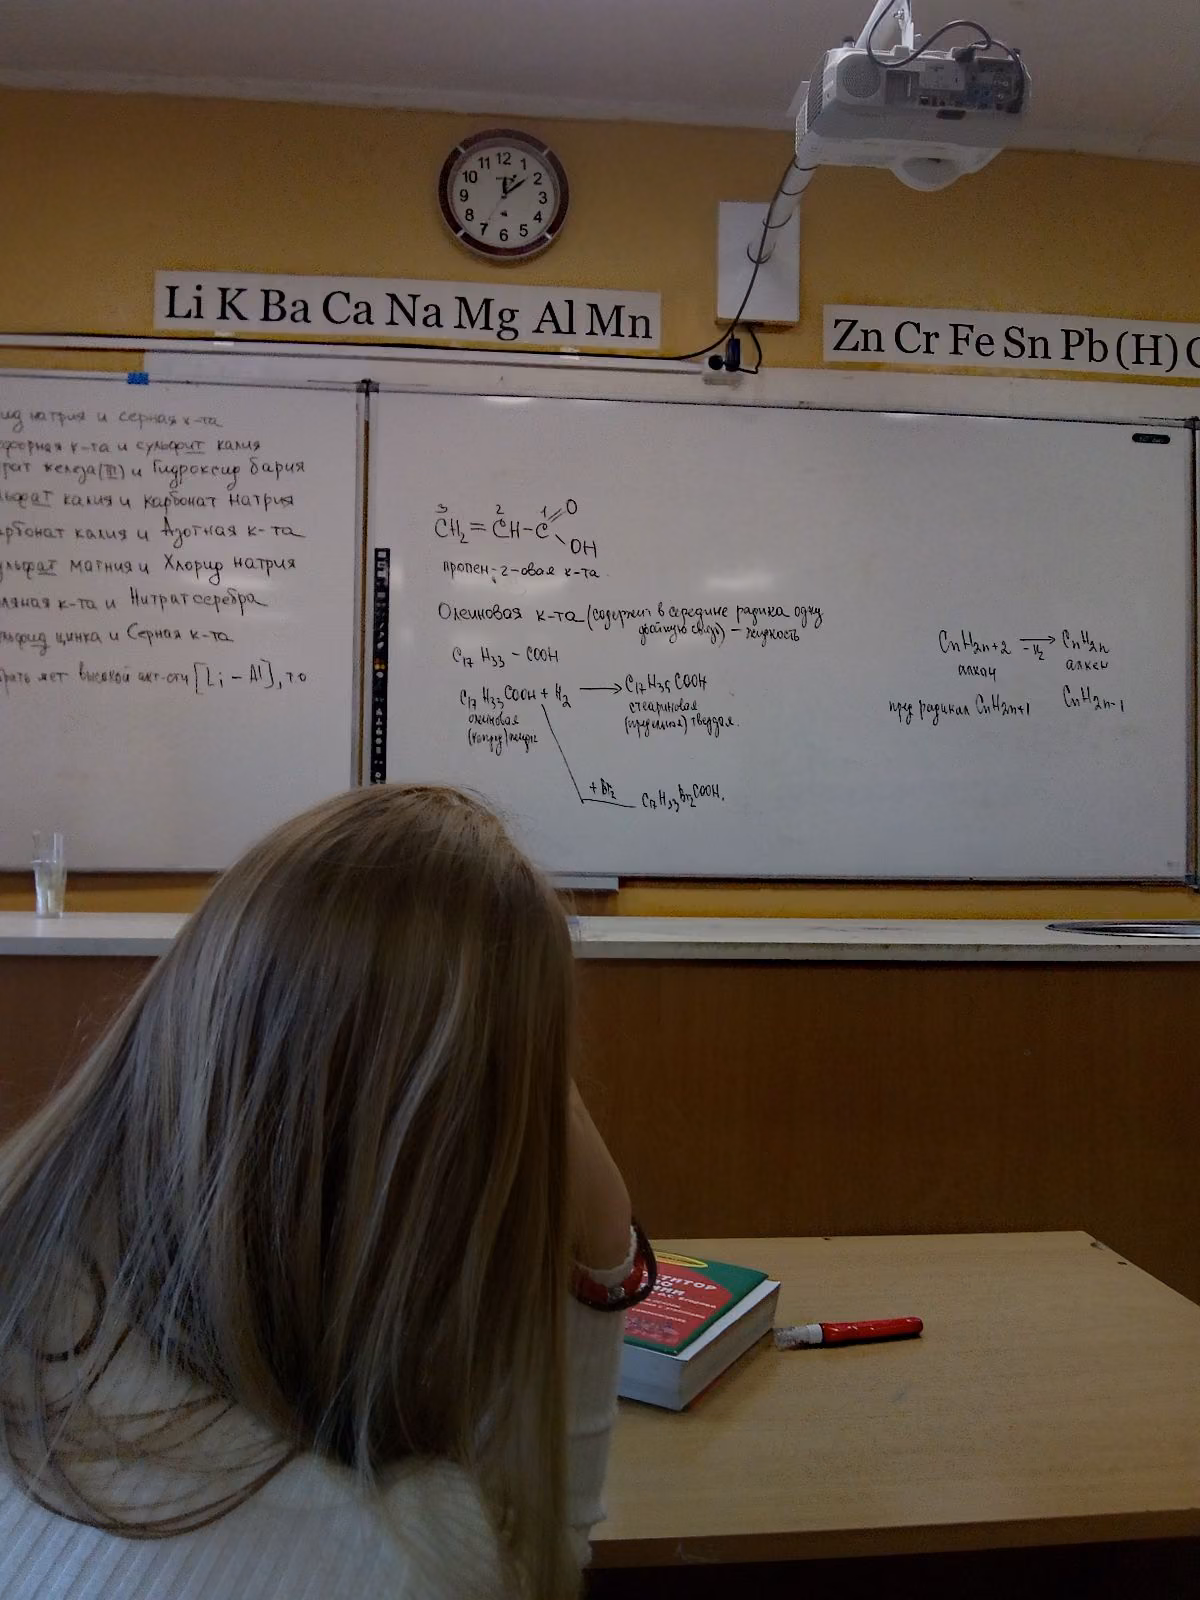 11 12 1
10 2
9 3
8 4
7 6 5
Li K Ba Ca Na Mg Al Mn
Zn Cr Fe Sn Pb (H) C
ид натрия и серная к-та
форная к-та и сульфит калия
рат железа (III) и Гидроксид бария
льфат калия и карбонат натрия
рбонат калия и Азотная к-та
ульфат магния и Хлорид натрия
ляная к-та и Нитрат серебра
льфид цинка и Серная к-та
брать мет высокой акт-сти [Li - Al], то
3 2 1
CH₂ = CH - C O
OH
пропен-2-овая к-та
Олеиновая к-та (содержит в середине радика одну
двойную связь) - жидкость
C₁₇ H₃₃ - COOH
C₁₇ H₃₃ COOH + H₂ → C₁₇H₃₅ COOH
олеиновая стеариновая
твердая.
+ Br₂ C₁₇ H₃₃ Br₂ COOH.
CnH2n+2 → -H₂ CnH2n
алкан алкен
пред радикал CnH2n+1 CnH2n-1
ТИТОР